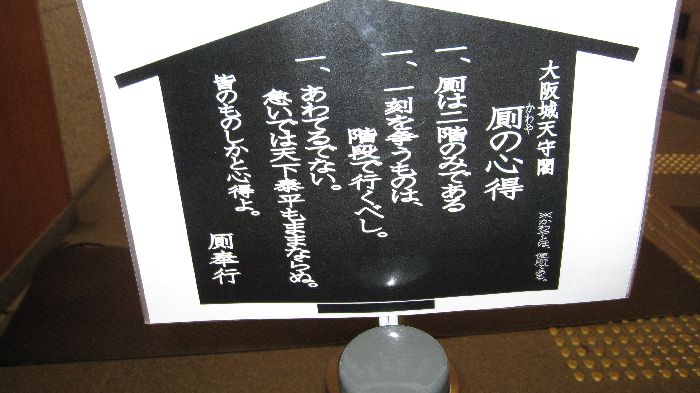 大阪城天守閣
厠の心得
かわや
※かわやとは、便所である。
一、厠は二階のみである
一、一刻を争うものは、
階段で行くべし。
一、あわてるでない。
急いでは天下泰平もままならぬ。
皆のものしかと心得よ。
厠奉行